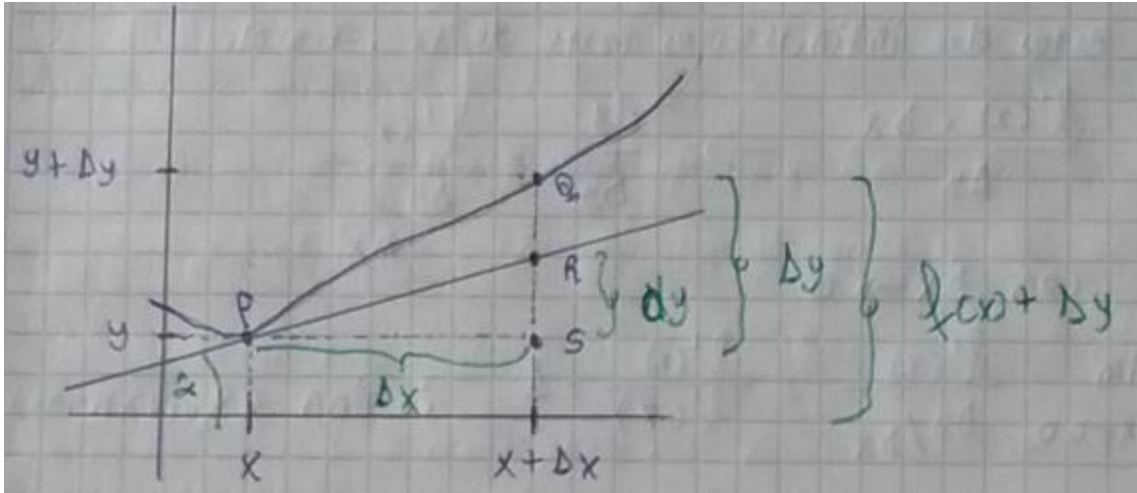 y + Δy
Q
R
Δy
f(x) + Δy
P
dy
y
S
α
Δx
x
x + Δx